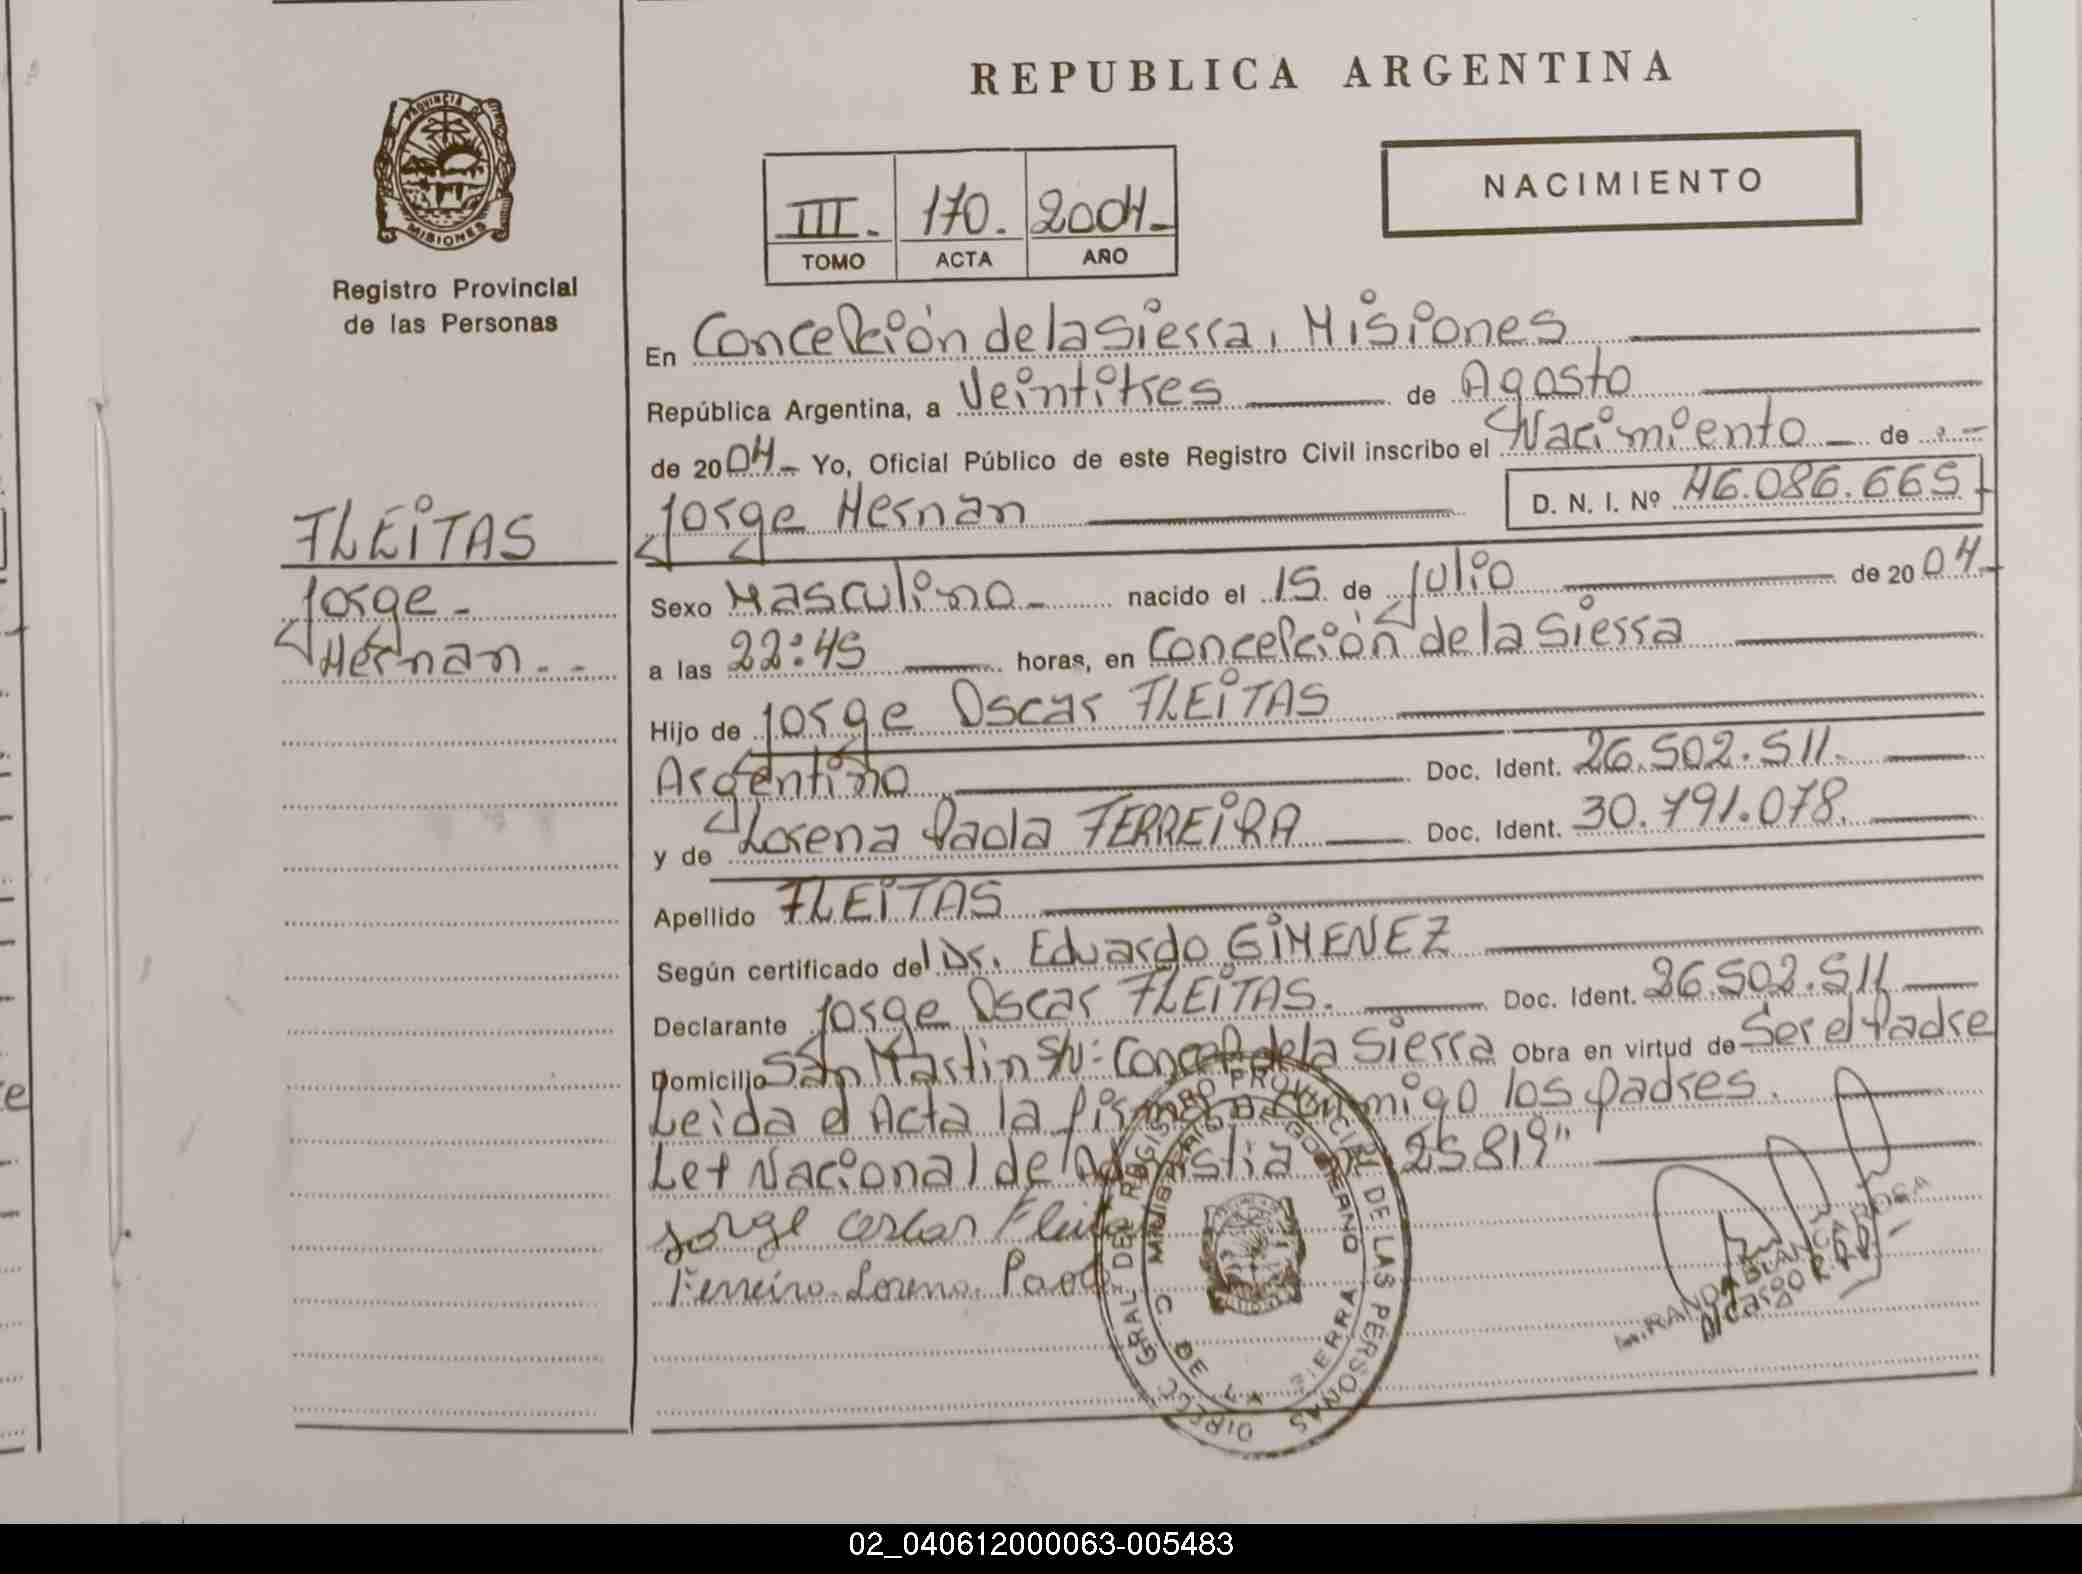 REPUBLICA ARGENTINA
PROVINCIA DE
MISIONES
Registro Provincial
de las Personas
III.- 170. 2004.-
TOMO ACTA AÑO
NACIMIENTO
FLEITAS
Jorge -
Hernan. - -
En Concepción de la Sierra, Misiones
República Argentina, a Veintitres de Agosto
de 2004.- Yo, Oficial Público de este Registro Civil inscribo el Nacimiento - de . -
Jorge Hernan D. N. I. Nº 46.086.665
Sexo Masculino - nacido el 15 de Julio de 2004-
a las 22:45 horas, en Concepción de la Sierra
Hijo de Jorge Oscar FLEITAS
Argentino Doc. Ident. 26.502.511.
y de Lorena Paola FERREIRA Doc. Ident. 30.791.078.
Apellido FLEITAS
Según certificado del Dr. Eduardo GIMENEZ
Declarante Jorge Oscar FLEITAS. Doc. Ident. 26.502.511
Domicilio San Martin S/N: Concep. de la Sierra Obra en virtud de Ser el Padre
Leida el Acta la firman conmigo los padres.
Ley Nacional de Amnistia nº 25819"
Jorge oscar Fleitas
Ferreira Lorena Paola
DIRECC. GRAL DEL REGISTRO PROVINCIAL DE LAS PERSONAS
MINISTERIO DE GOBIERNO
C. DE LA SIERRA
MIRANDA BLANCA ROSA
A/Cargo R.P.P.
02_040612000063-005483